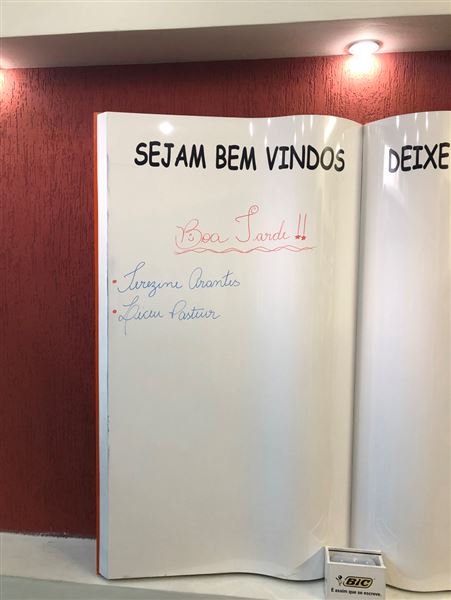 SEJAM BEM VINDOS
DEIXE
Boa Tarde!!
• Terezine Arantes
• Liceu Pasteur
BIC
É assim que se escreve.